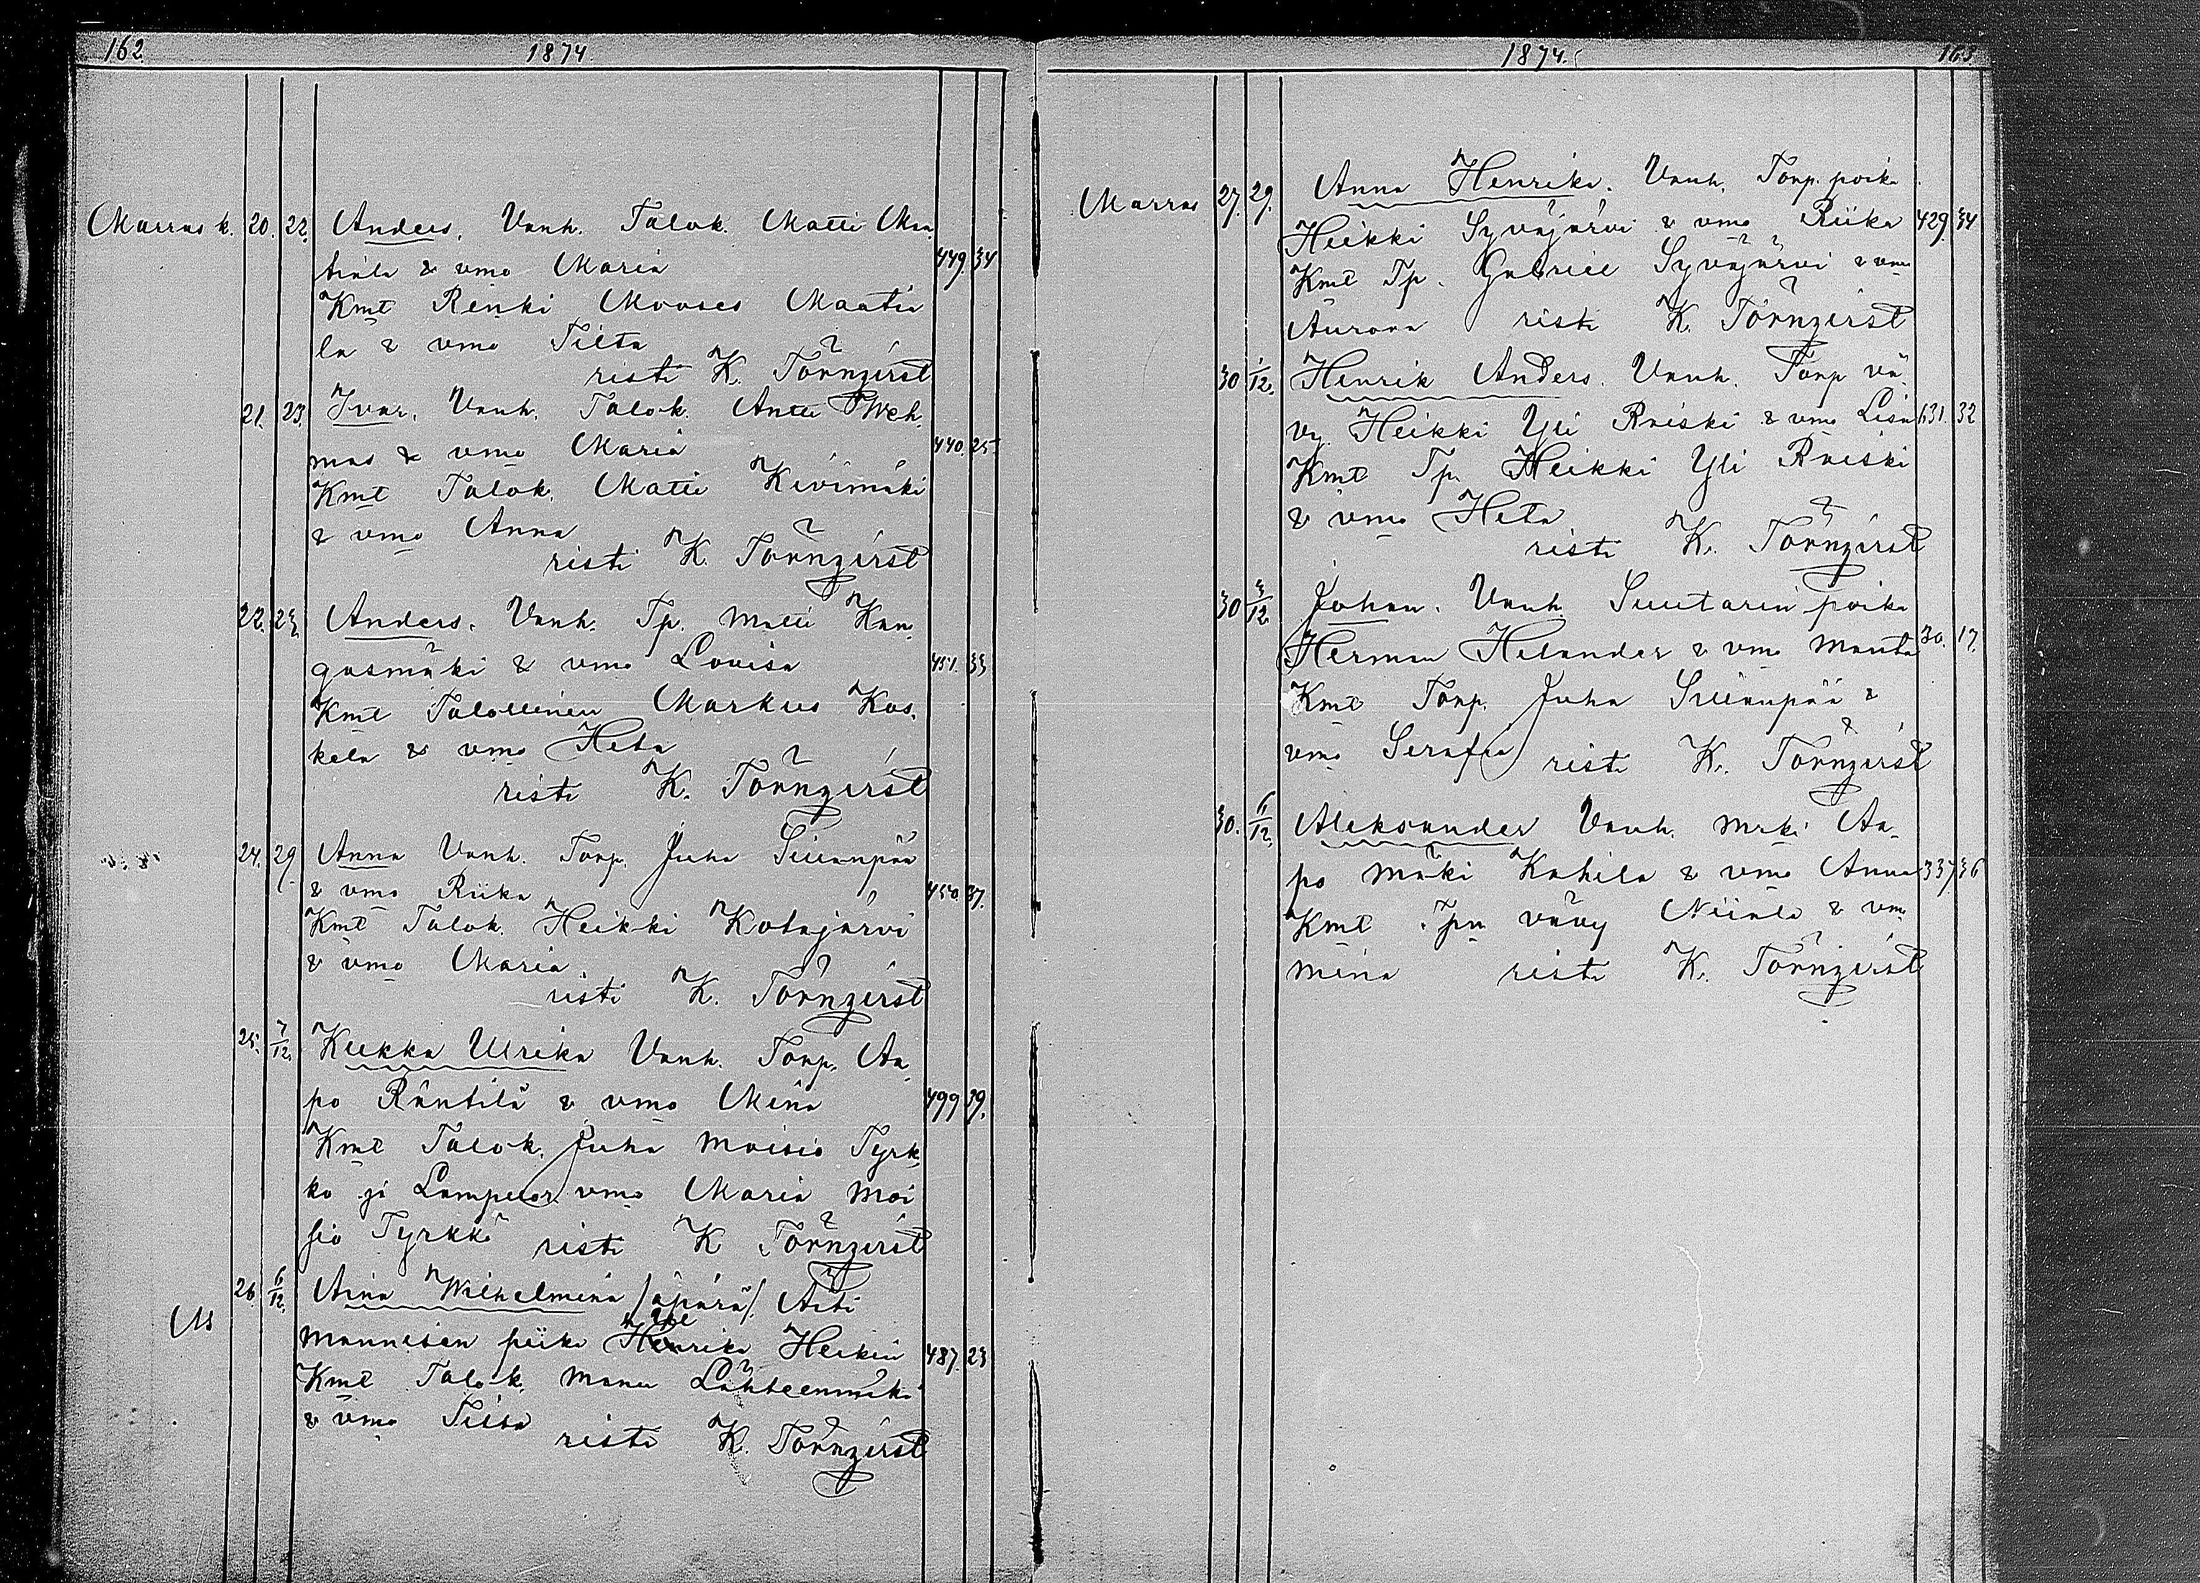 162 1874.
Marras k. 20. 22. Anders, Vanh. Talok. Matti Maa
tiala & vmo Maria 449. 34
Kmt Renki Mooses Maatia
la & vmo Tilta
risti K. Törnqvist
21. 23. Ivar, Vanh. Talok. Antti Weh.
mas & vmo Maria 440. 25
Kmt Talok. Matti Kivimäki
& vmo Anna
risti K. Törnqvist
22. Anders, Vanh. Tp. Matti Kan
gasmäki & vmo Lovisa 451. 33
Kmt Talollinen Markus Kos.
kela & vmo Heta
risti K. Törnqvist
24. 29. Anna Vanh. Torp. Juha Siiranpää
& vmo Riika 450. 37.
Kmt Talok. Heikki Kotajärvi
& vmo Maria
risti K. Törnqvist
25. 7/12. Kukka Ulrika Vanh. Torp. Aa
po Räntilä & vmo Mina 499 39.
Kmt Talok. Juha Moisio Tyrk
kö ja Lampuor vmo Maria Moi
sio Tyrkkö risti K Törnqvist
26. 6/12. Aina Wilhelmina /äpärä/. Äiti
Mannisen piika Henrika Heikin 487. 23
Kmt Talok. Manu Lähteenmäki
& vmo Tiisa
risti K. Törnqvist
1874. 163.
Marras 27. 29. Anna Henrika. Vanh. Torp. poika
Heikki Syväjärvi & vmo Riika 429. 34
Kmt Tp. Gabriel Syväjärvi & vmo
Aurora risti K. Törnqvist
30 1/12. Henrik Anders. Vanh. Torp vä
vy. Heikki Yli Raiski & vmo Lisa 631. 32
Kmt Tp. Heikki Yli Raiski
& vmo Heta
risti K. Törnqvist
30 3/12. Johan. Vanh. Suutarin poika
Herman Helander & vmo Manta 30. 17.
Kmt Torp. Juha Siiranpää &
vmo Serafia risti K. Törnqvist
30. 6/12. Aleksander Vanh. Mäki Aa
po Mäki Kahila & vmo Anna 337 36
Kmt Tpn vävy Niiala & vmo
Mina risti K. Törnqvist